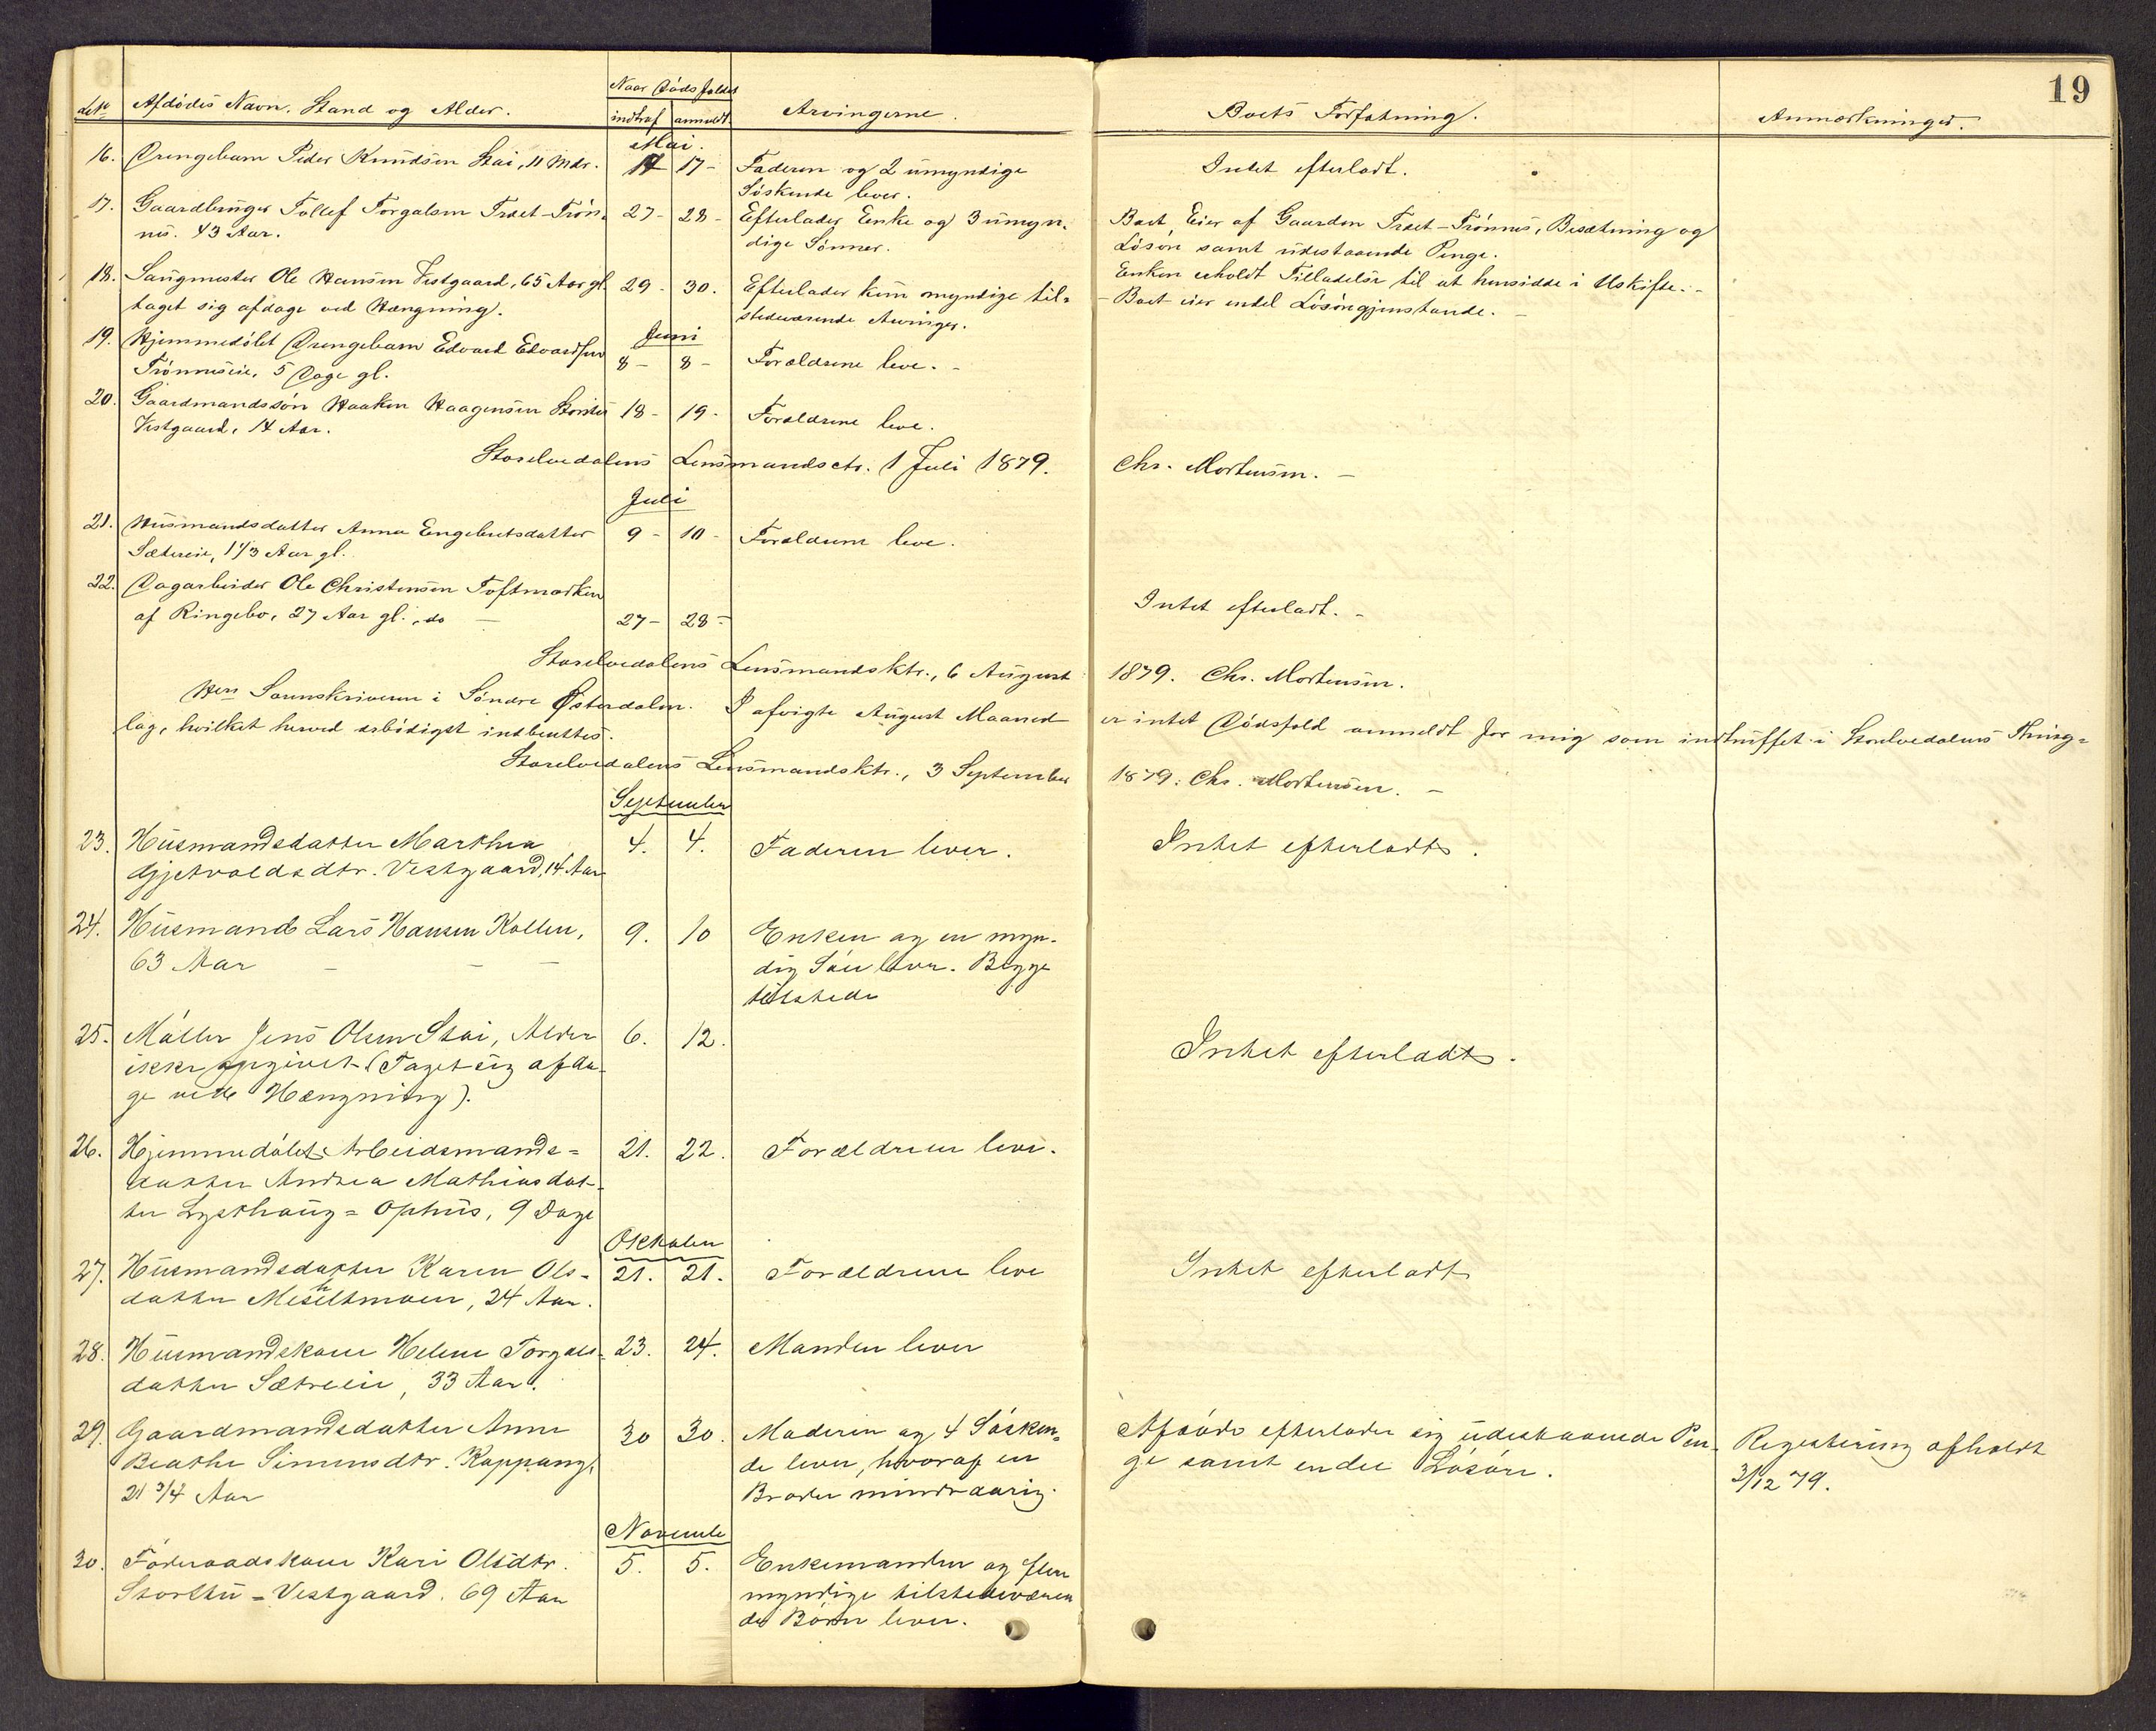 19
Naar Dødsfaldet
Afdødes Navn, Stand og Alder. indtraf anmeldt Arvingerne. Boets Forfatning. Anmærkninger.
Mai.
16. Drengebarn Peder Knudsen Stai, 11 Mdr. 17 - Faderen og 2 umyndige Intet efterladt.
Søskende lever.
17. Gaardbruger Tollef Torgalsen Træet-Trøn- 27- 28- Efterlader Enke og 3 umyn- Boet Eier af Gaarden Træet-Trønnes, Besætning og
nes. 43 Aar. dige Sønner. Løsøre samt udestaaende Penge.
Enken erholdt Tilladelse til at hensidde i Uskifte. -
18. Sangmester Ole Hansen Vestgaard, 65 Aar gl. 29- 30. Efterlader kun myndige til- - Boet eier endel Løsøregjenstande. -
taget sig afdage ved Hængning. stedeværende Arvinger.
Juni
19. Hjemmedøbt Drengebarn Edvard Edvardsen 8- 8- Forældrene leve. -
Trønneseie, 5 Dage gl.
20. Gaardmandssøn Haaken Haagensen Storstu 18- 19- Forældrene leve.
Vestgaard, 14 Aar.
Storelvedalens Lensmandsctr. 1 Juli 1879. Chr. Mortensen. -
Juli
21. Husmandsdatter Anna Engebretsdatter 9- 10- Forældrene leve.
Sætereie, 1 1/3 Aar gl.
22. Dagarbeider Ole Christensen Toftmarken
af Ringebo, 27 Aar gl., do - 27- 28- Intet efterladt. -
Storelvedalens Lensmandsktr., 6 August 1879. Chr. Mortensen.
Herr Sorenskriveren i Søndre Østerdalen. I afvigte August Maaned er intet Dødsfald anmeldt for mig som indtruffet i Storelvedalens Thing-
lag, hvilket herved ærbødigst indberettes.
Storelvedalens Lensmandsktr., 3 September 1879. Chr. Mortensen. -
September
23. Husmandsdatter Marthea 4. 4. Faderen lever. Intet efterladt.
Gjetvoldsdtr. Vestgaard, 14 Aar
24. Husmand Lars Hansen Kollen, 9. 10 Enken og en myn-
63 Aar - - - dig Søn lever. Begge
tilstede
25. Møller Jens Olsen Stai, Alder 6. 12. Intet efterladt.
ikke opgivet. (Taget sig afda-
ge ved Hængning).
26. Hjemmedøbt Arbeidsmands- 21. 22. Forældrene leve.
datter Andrea Mathiasdat-
ter Lysthaug-Ophus, 9 Dage
Oktober
27. Husmandsdatter Karen Ols- 21. 21. Forældrene leve Intet efterladt
datter Meseltmoen, 24 Aar.
28. Husmandskone Helene Torgals- 23. 24. Manden lever
datter Sætreeie, 33 Aar.
29. Gaardmandsdatter Anne 30 30. Moderen og 4 Søsken- Afdøde efterlader sig udestaaende Pen- Registrering afholdt
Beathe Simensdtr. Koppang, de lever, hvoraf en ge samt endel Løsøre. 3/12 79.
21 3/4 Aar Broder mindreaarig.
November
30. Føderaadskone Kari Olsdtr. 5. 5. Enkemanden og flere
Storstu-Vestgaard. 69 Aar myndige tilstedeværen
de Børn lever.